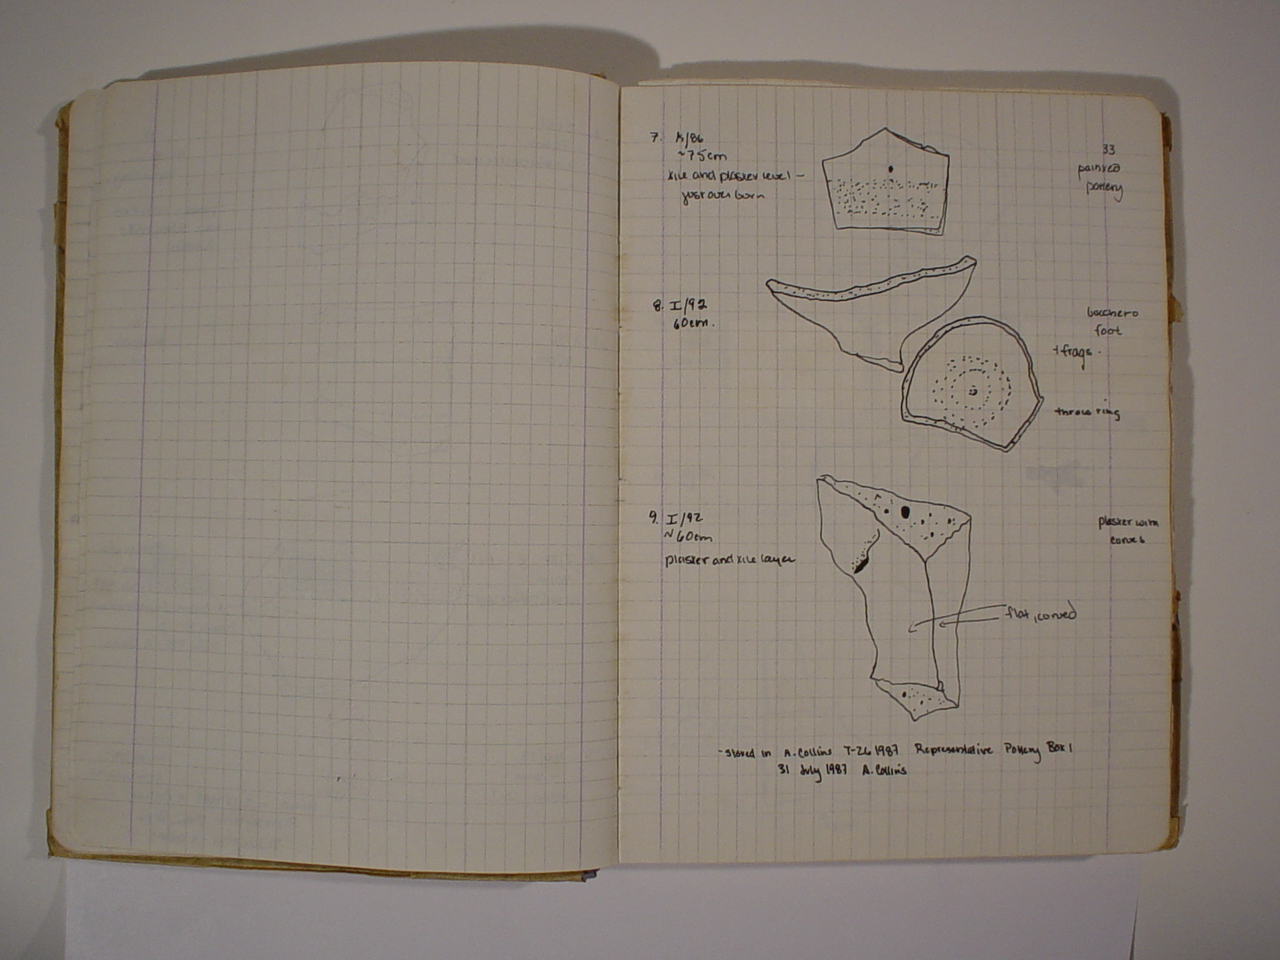 33
7. K/86
~75cm
tile and plaster level -
just over burn
painted
pottery
8. I/92
60cm.
bucchero
foot
+ frags.
throw ring
9. I/92
~60cm
plaster and tile layer
plaster with
curves
flat, curved
- stored in A. Collins T-26 1987 Representative Pottery Box 1
31 July 1987 A. Collins